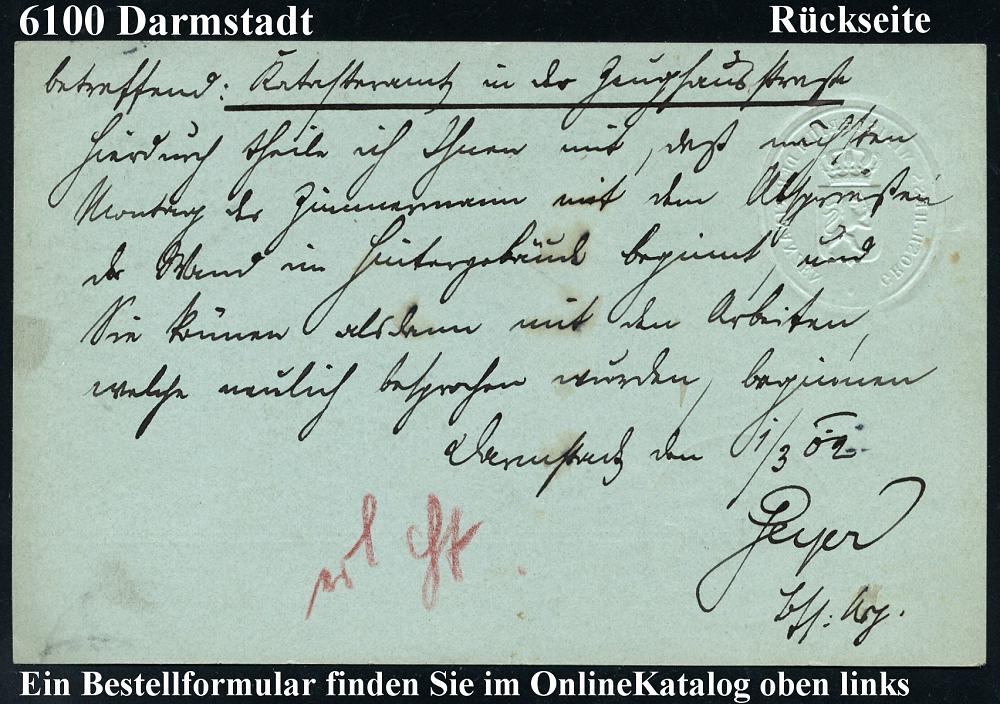 6100 Darmstadt
Rückseite
betreffend: Katasteramt in der Zeughausstraße
Hierdurch theile ich Ihnen mit, daß nächsten
Montag der Zimmermann mit dem Absprießen
der Wand im Hintergebäude beginnt, und
Sie können alsdann mit den Arbeiten,
welche neulich besprochen wurden, beginnen
Darmstadt den 1/3 02
Geyer
Ein Bestellformular finden Sie im OnlineKatalog oben links